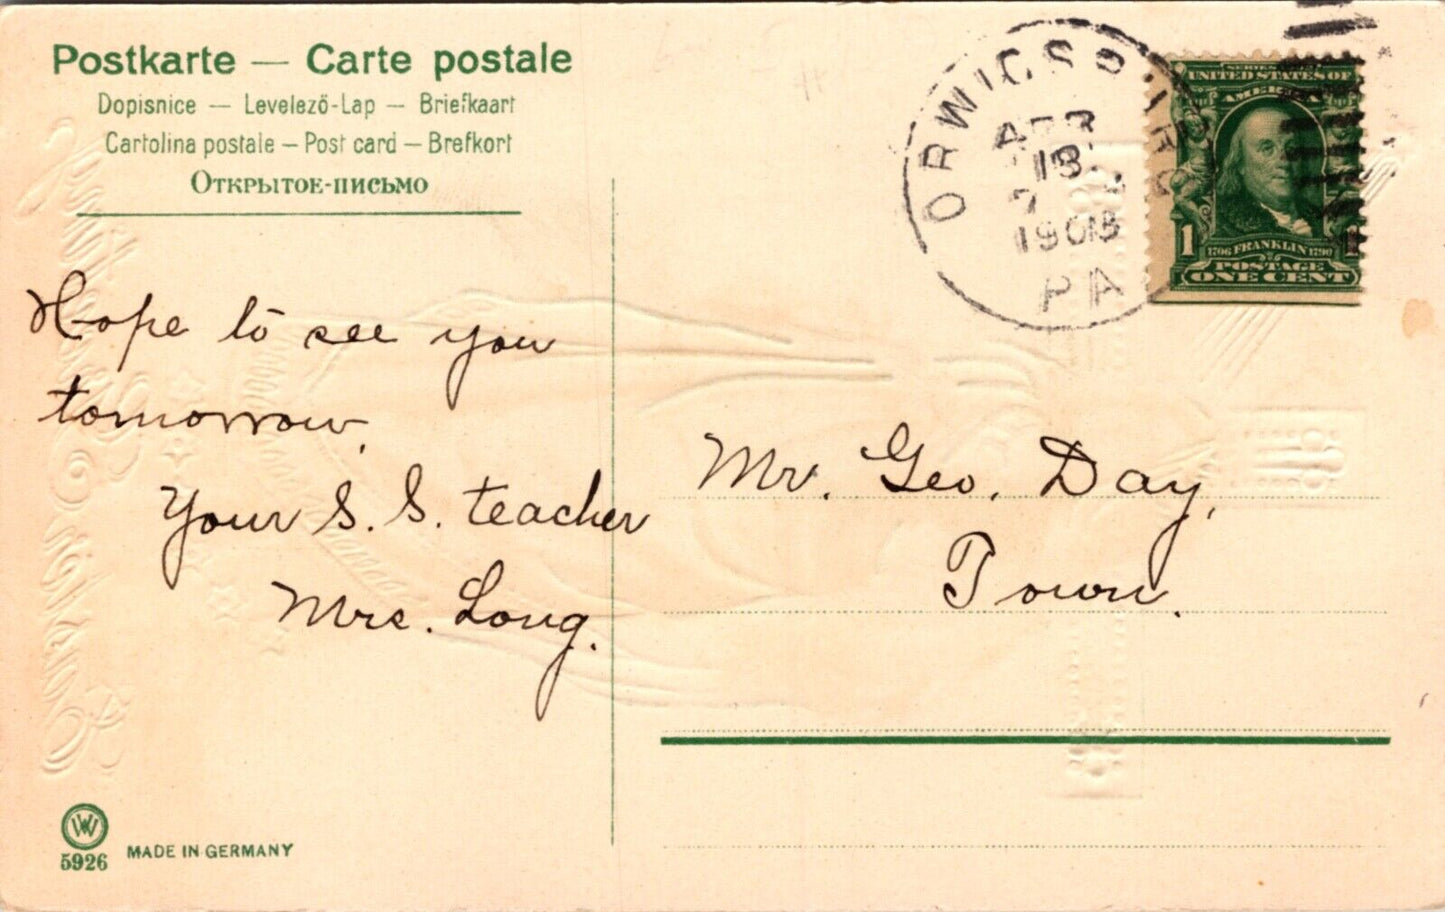 Postkarte — Carte postale
Dopisnice — Levelező-Lap — Briefkaart
Cartolina postale — Post card — Brefkort
Открытое-письмо
ORWIGSBURG
APR
18
1908
PA
SERIES 1902
UNITED STATES OF
AMERICA
1
1706 FRANKLIN 1790
POSTAGE
ONE CENT
Hope to see you
tomorrow.
Your S. S. teacher
Mrs. Long.
Mr. Geo. Day,
Town.
WW
5926
MADE IN GERMANY